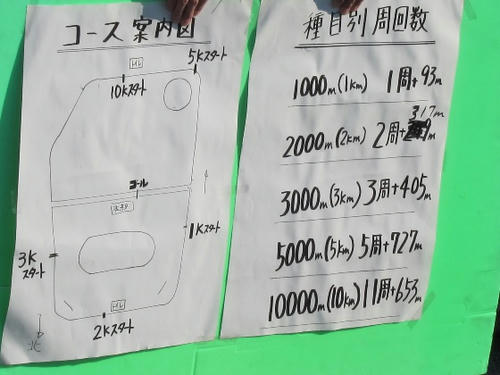 コース案内図
トイレ
5Kスタート
10Kスタート
ゴール
1Kスタート
3K
スタート
トイレ
2Kスタート
北
種目別 周回数
1000m(1km) 1周+93m
317m
2000m(2km) 2周+
3000m(3km) 3周+405m
5000m(5km) 5周+727m
10000m(10km) 11周+653m